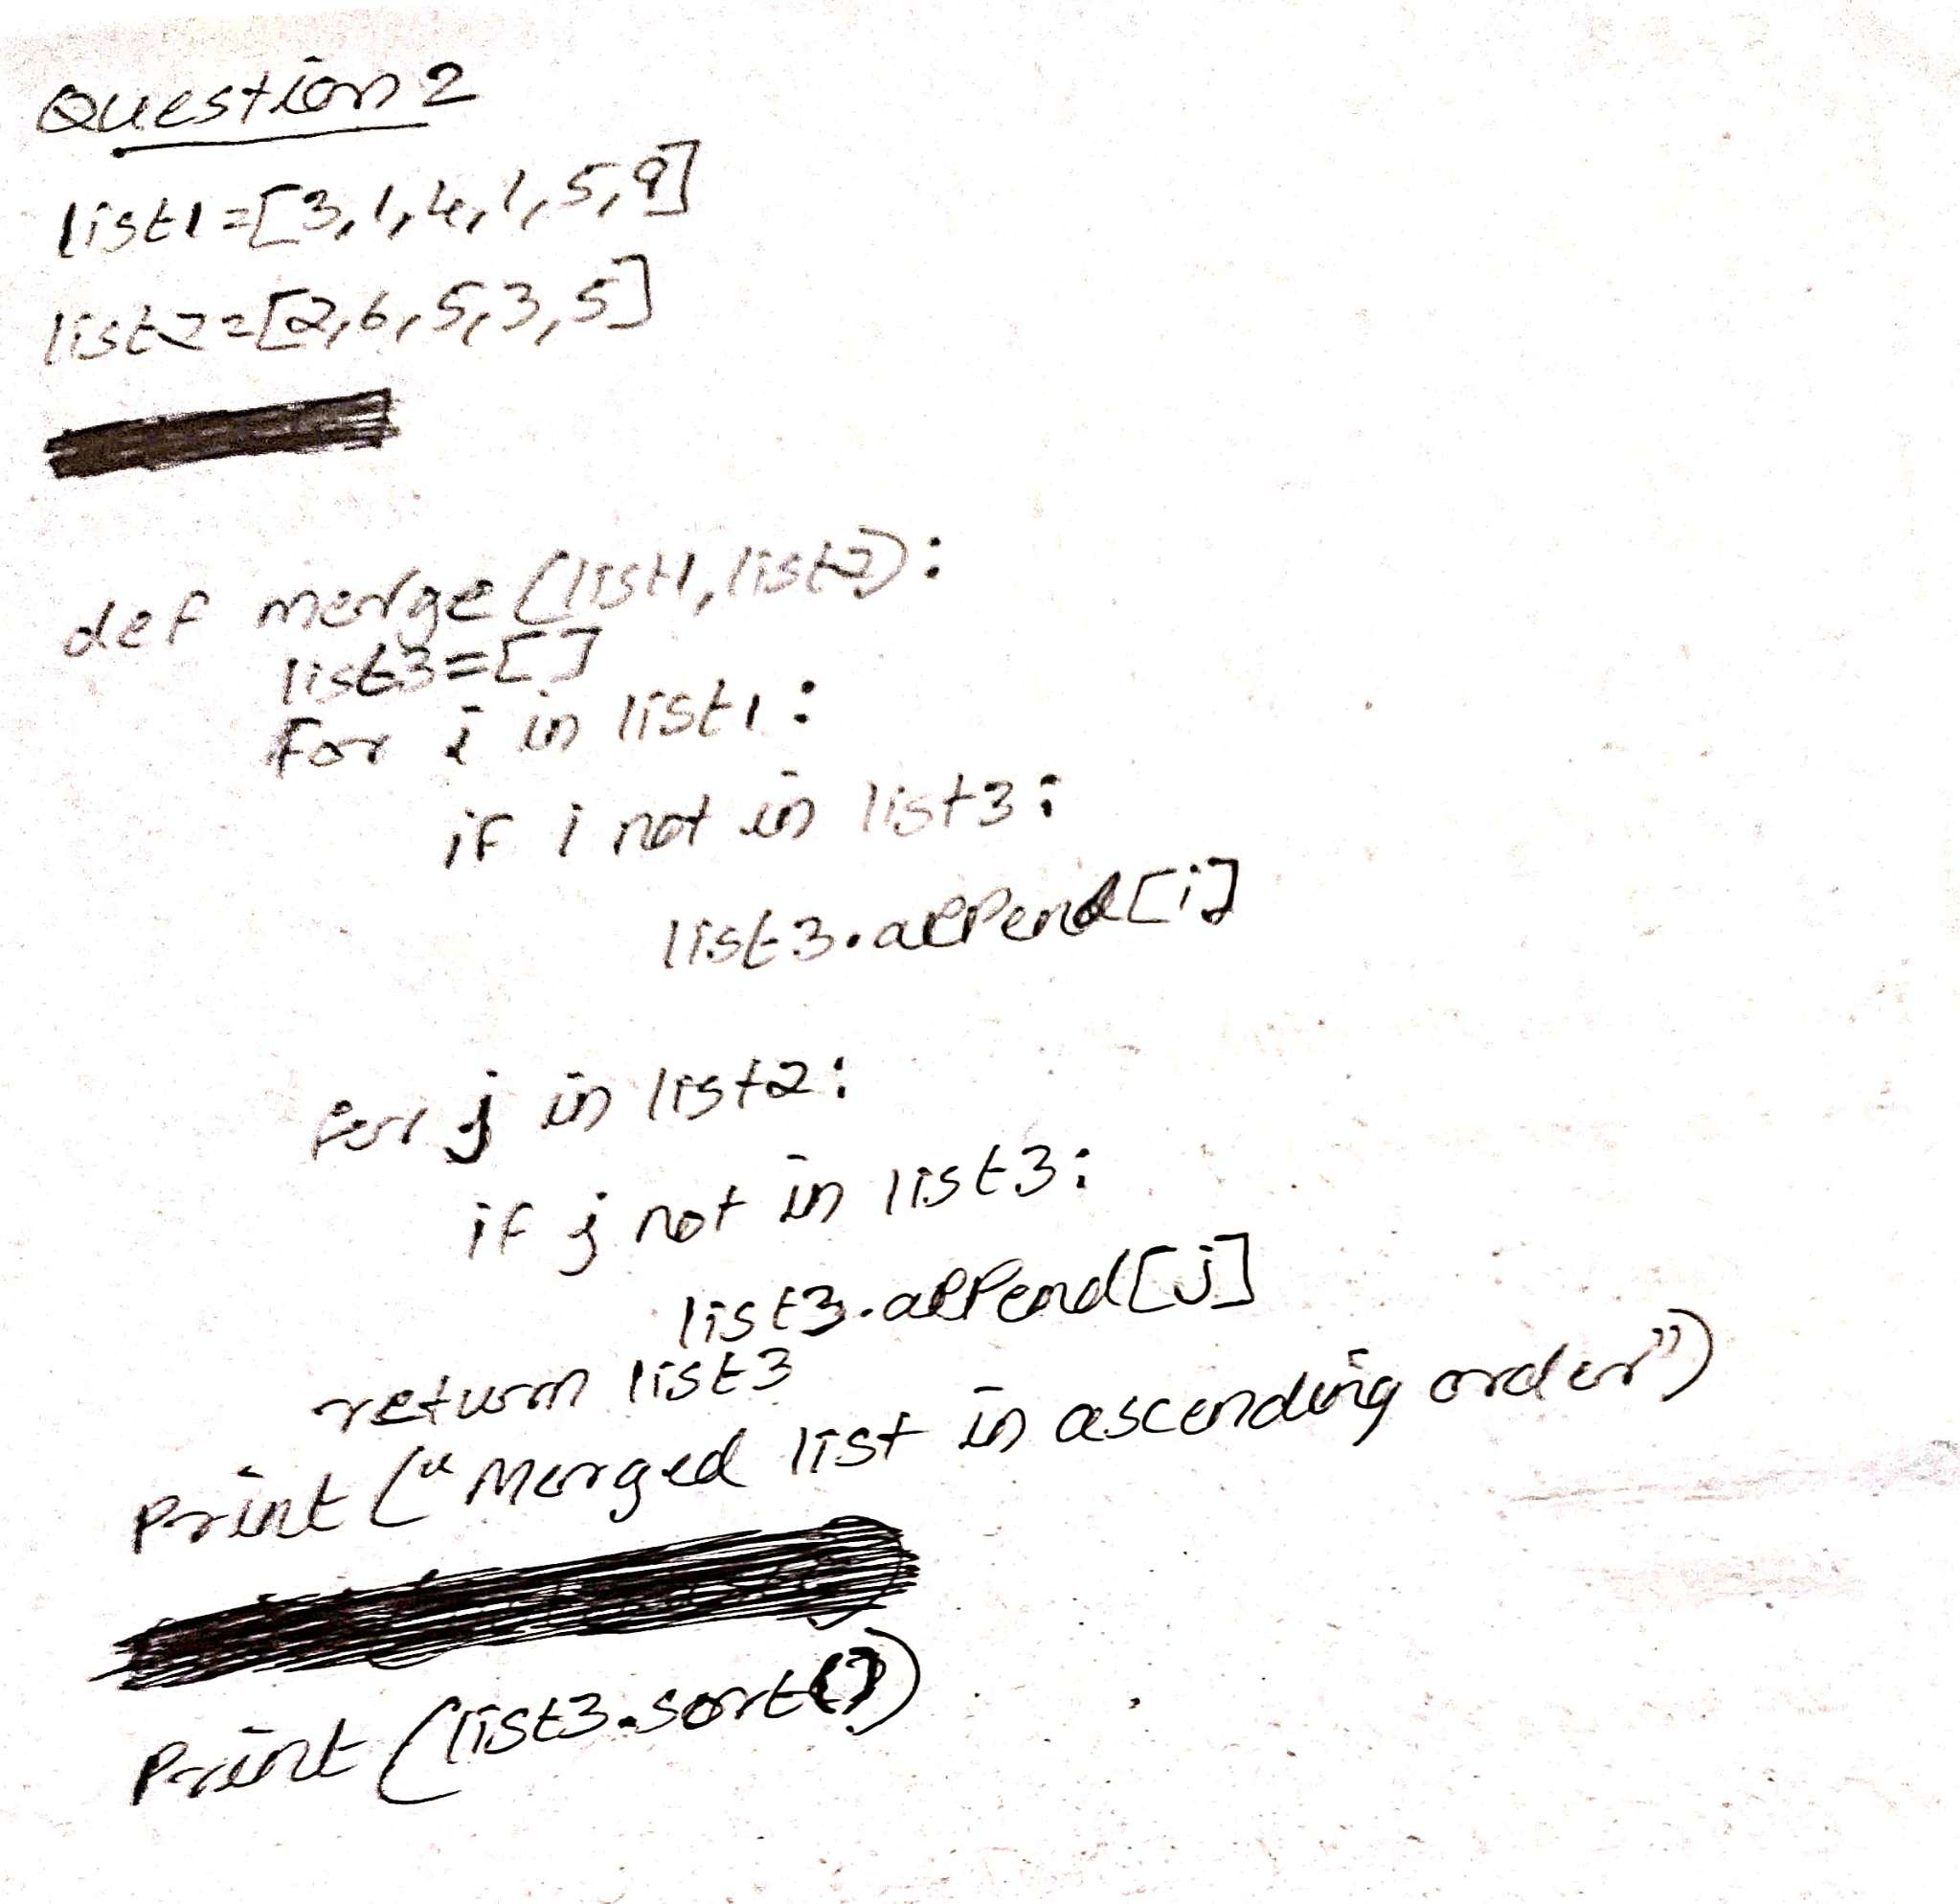 Question 2
list1=[3,1,4,1,5,9]
list2=[2,6,5,3,5]
def merge(list1,list2):
list3=[]
For i in list1:
if i not in list3:
list3.append[i]
for j in list2:
if j not in list3:
list3.append[j]
return list3
Print("Merged list in ascending order")
Print(list3.sort())